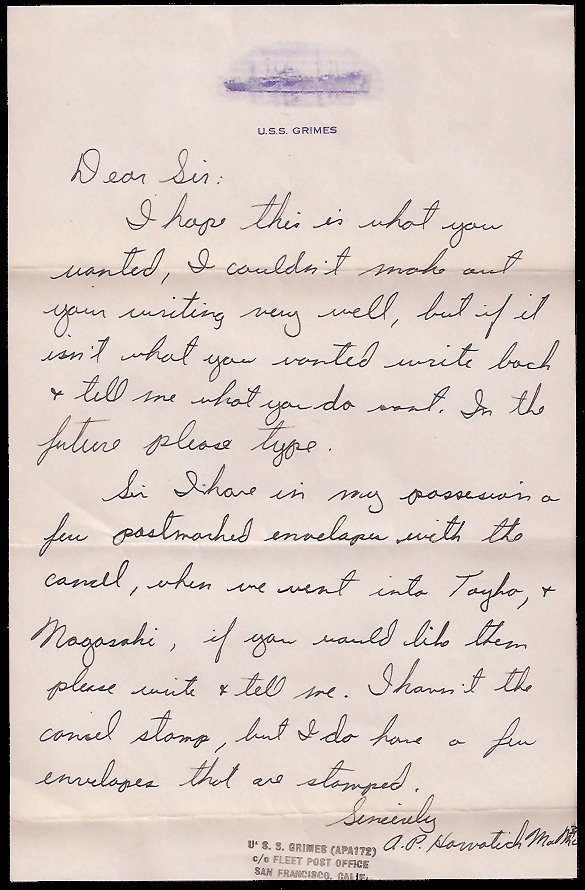 U.S.S. GRIMES
Dear Sir:
I hope this is what you
wanted, I couldn't make out
your writing very well, but if it
isn't what you wanted write back
& tell me what you do want. In the
future please type.
Sir I have in my possesion a
few postmarked envelopes with the
cancel, when we went into Toyko, &
Nagasaki, if you would like them
please write & tell me. I haven't the
cancel stamp, but I do have a few
envelopes that are stamped.
Sincerely
A.P. Horvatich
U. S. S. GRIMES (APA172)
c/o FLEET POST OFFICE
SAN FRANCISCO, CALIF.